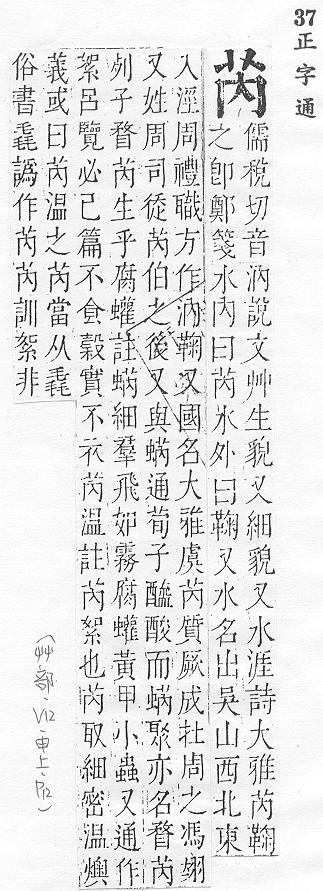 37 正字通
芮
儒稅切音汭說文艸生貌又細貌又水涯詩大雅芮鞫
之卽鄭箋水內曰芮水外曰鞫又水名出吳山西北東
入涇周禮職方作汭鞫又國名大雅虞芮質厥成杜周之馮翊
又姓周司徒芮伯之後又與蜹通荀子醯酸而蜹聚亦名瞀芮
列子瞀芮生乎腐蠸註蜹細羣飛如霧腐蠸黃甲小蟲又通作
絮呂覽必己篇不食穀實不衣芮温註芮絮也芮取細密温燠
義或曰芮温之芮當从毳
俗書毳譌作芮芮訓絮非
(艸部.V12.申上.P2)